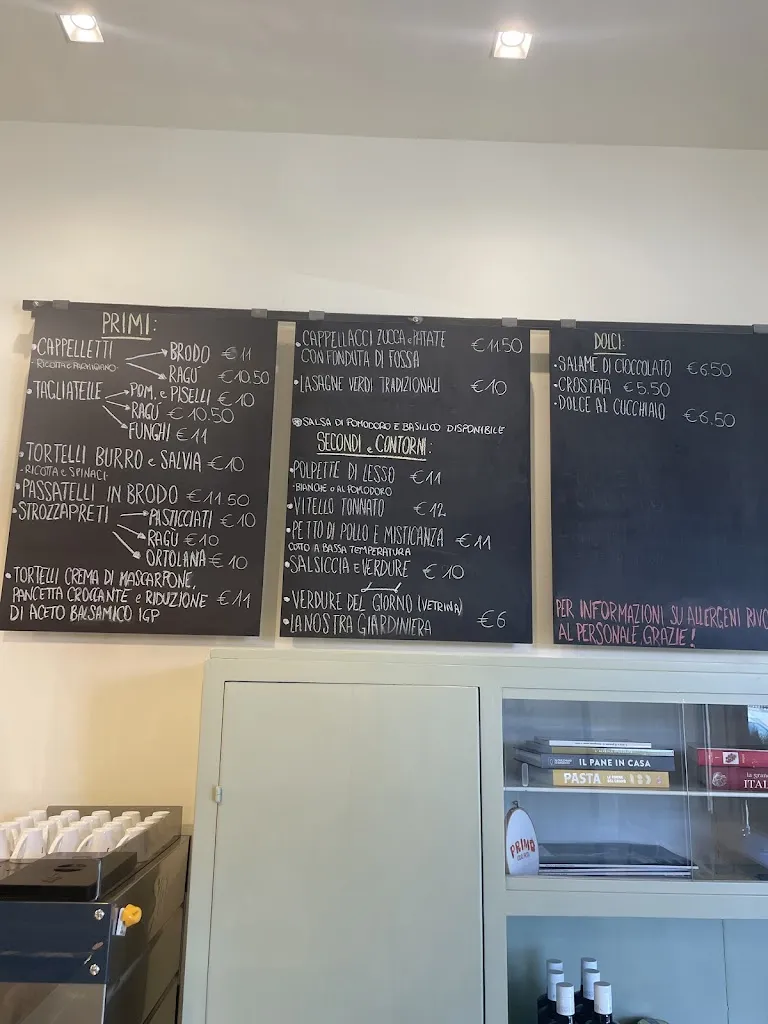 PRIMI:
• CAPPELLETTI BRODO €11
- RICOTTA E PARMIGIANO - RAGÙ €10.50
• TAGLIATELLE POM. e PISELLI €10
RAGÙ €10.50
FUNGHI €11
• TORTELLI BURRO e SALVIA €10
- RICOTTA e SPINACI -
• PASSATELLI IN BRODO €11.50
• STROZZAPRETI PASTICCIATI €10
RAGÙ €10
ORTOLANA €10
• TORTELLI CREMA DI MASCARPONE,
PANCETTA CROCCANTE e RIDUZIONE €11
DI ACETO BALSAMICO IGP
• CAPPELLACCI ZUCCA e PATATE €11.50
CON FONDUTA DI FOSSA
• LASAGNE VERDI TRADIZIONALI €10
SALSA DI POMODORO E BASILICO DISPONIBILE
SECONDI e CONTORNI:
• POLPETTE DI LESSO €11
- BIANCHE O AL POMODORO
• VITELLO TONNATO €12
• PETTO DI POLLO E MISTICANZA €11
COTTO A BASSA TEMPERATURA
• SALSICCIA e VERDURE €10
• VERDURE DEL GIORNO (VETRINA)
• LA NOSTRA GIARDINIERA €6
DOLCI:
• SALAME DI CIOCCOLATO €6.50
• CROSTATA €5.50
• DOLCE AL CUCCHIAIO €6.50
PER INFORMAZIONI SU ALLERGENI RIVO
AL PERSONALE, GRAZIE!
IL PANE IN CASA
PASTA
la grand
ITAL
PRIMO